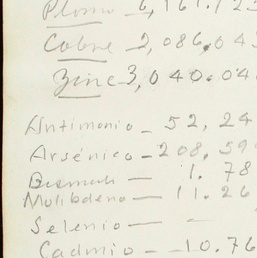 Plomo 6,161.123
Cobre 2,086.043
Zinc 3,040.04
Antimonio - 52,24
Arsénico - 208,59
Bismuth - 1.78
Molibdeno - 11.26
Selenio - -
Cadmio - 10.76